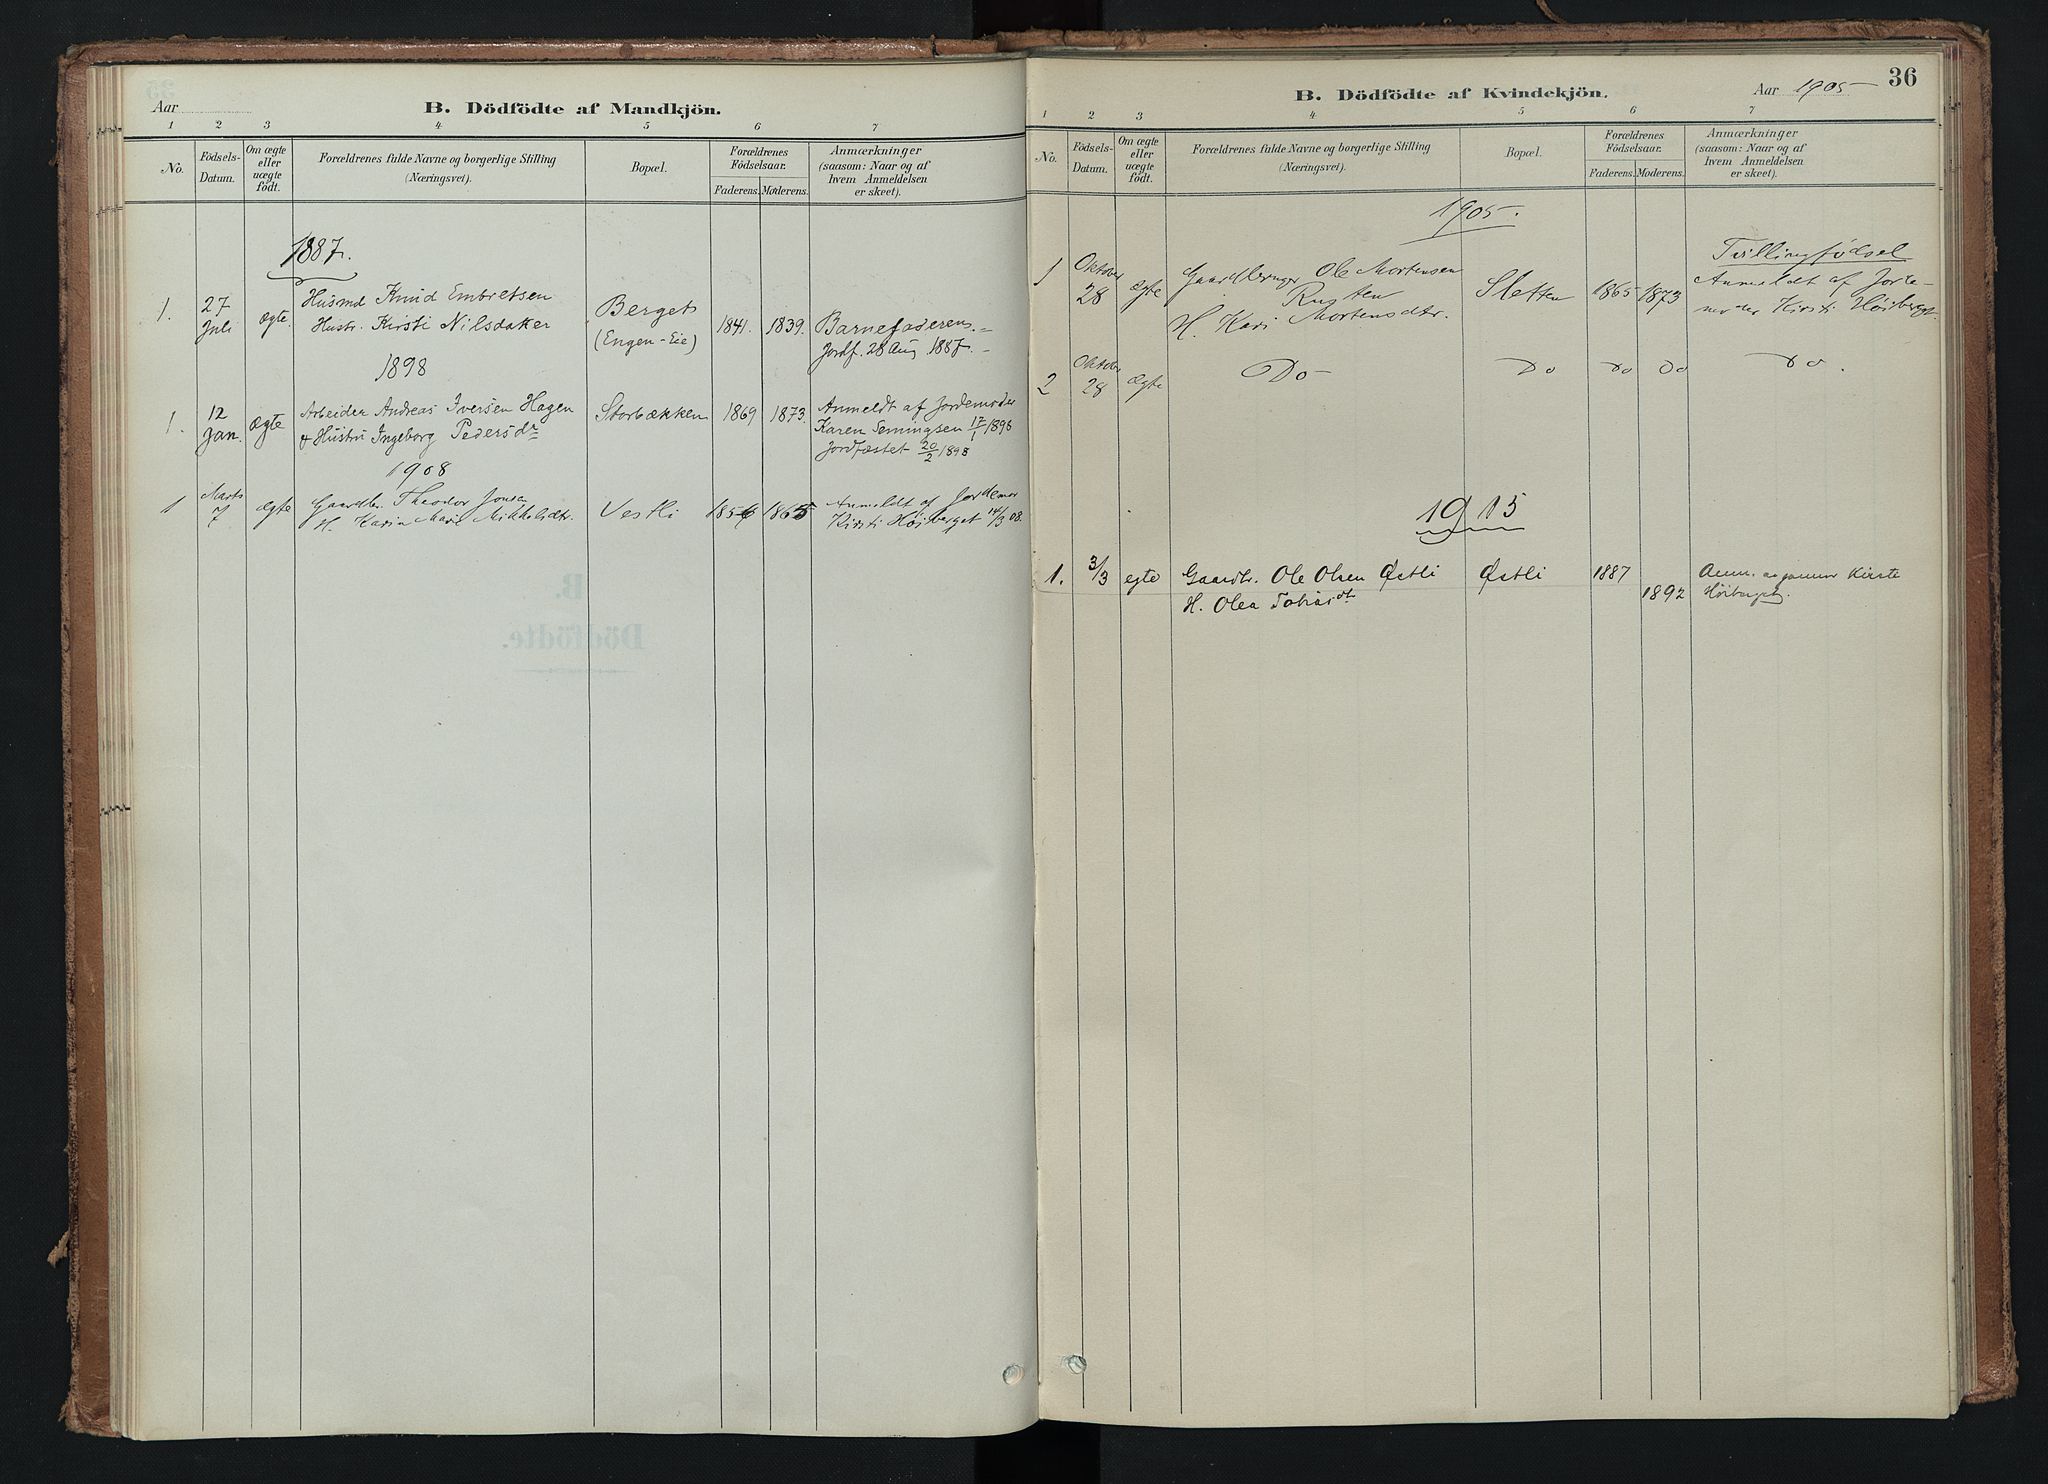 Aar
B. Dödfödte af Mandkjön.
1 2 3 4 5 6 7
No.
Födsels-Datum.
Om ægte eller uægte födt.
Forældrenes fulde Navne og borgerlige Stilling (Næringsvei).
Bopæl.
Forældrenes Födselsaar.
Faderens. Moderens.
Anmærkninger (saasom: Naar og af hvem Anmeldelsen er skeet).
1887.
1. 27 Juli ægte. Husmd Knud Embretsen Berget 1841. 1839. Barnefaderen.
Hustr. Kirsti Nilsdaker (Engen-Eie) Jordf. 28 Aug 1887.
1898
1. 12 Jan. ægte Arbeider Andreas Iversen Hagen Storbækken 1869 1873. Anmeldt af Jordemoder
& Hustru Ingeborg Pedersdr Karen Semingsen 17/1 1898
Jordfæstet 20/2 1898
1908
1 Marts 7 ægte Gaardbr. Theodor Jonsen Vestli 1856 1865 Anmeldt af Jordemor
H. Karin Marie Mikkelsdtr. Kirsti Höiberget 14/3 08.
B.
Dödfödte.
36
B. Dödfödte af Kvindekjön.
Aar 1905
1 2 3 4 5 6 7
No.
Födsels-Datum.
Om ægte eller uægte födt.
Forældrenes fulde Navne og borgerlige Stilling (Næringsvei).
Bopæl.
Forældrenes Födselsaar.
Faderens. Moderens.
Anmærkninger (saasom: Naar og af hvem Anmeldelsen er skeet).
1905.
Tvillingfödsel
1 Oktober 28 ægte Gaardbruger Ole Mortensen Sletten 1865 1873 Anmeldt af Jorde-
Rusten moder Kirsti Höiberget.
H. Kari Mortensdtr.
2 Oktober 28 ægte Do Do Do Do Do.
1915
1. 3/3 egte Gaardbr. Ole Olsen Østli Østli 1887 Anm. Kirste
H. Olea Tobiasdt. 1892 Höiberget.